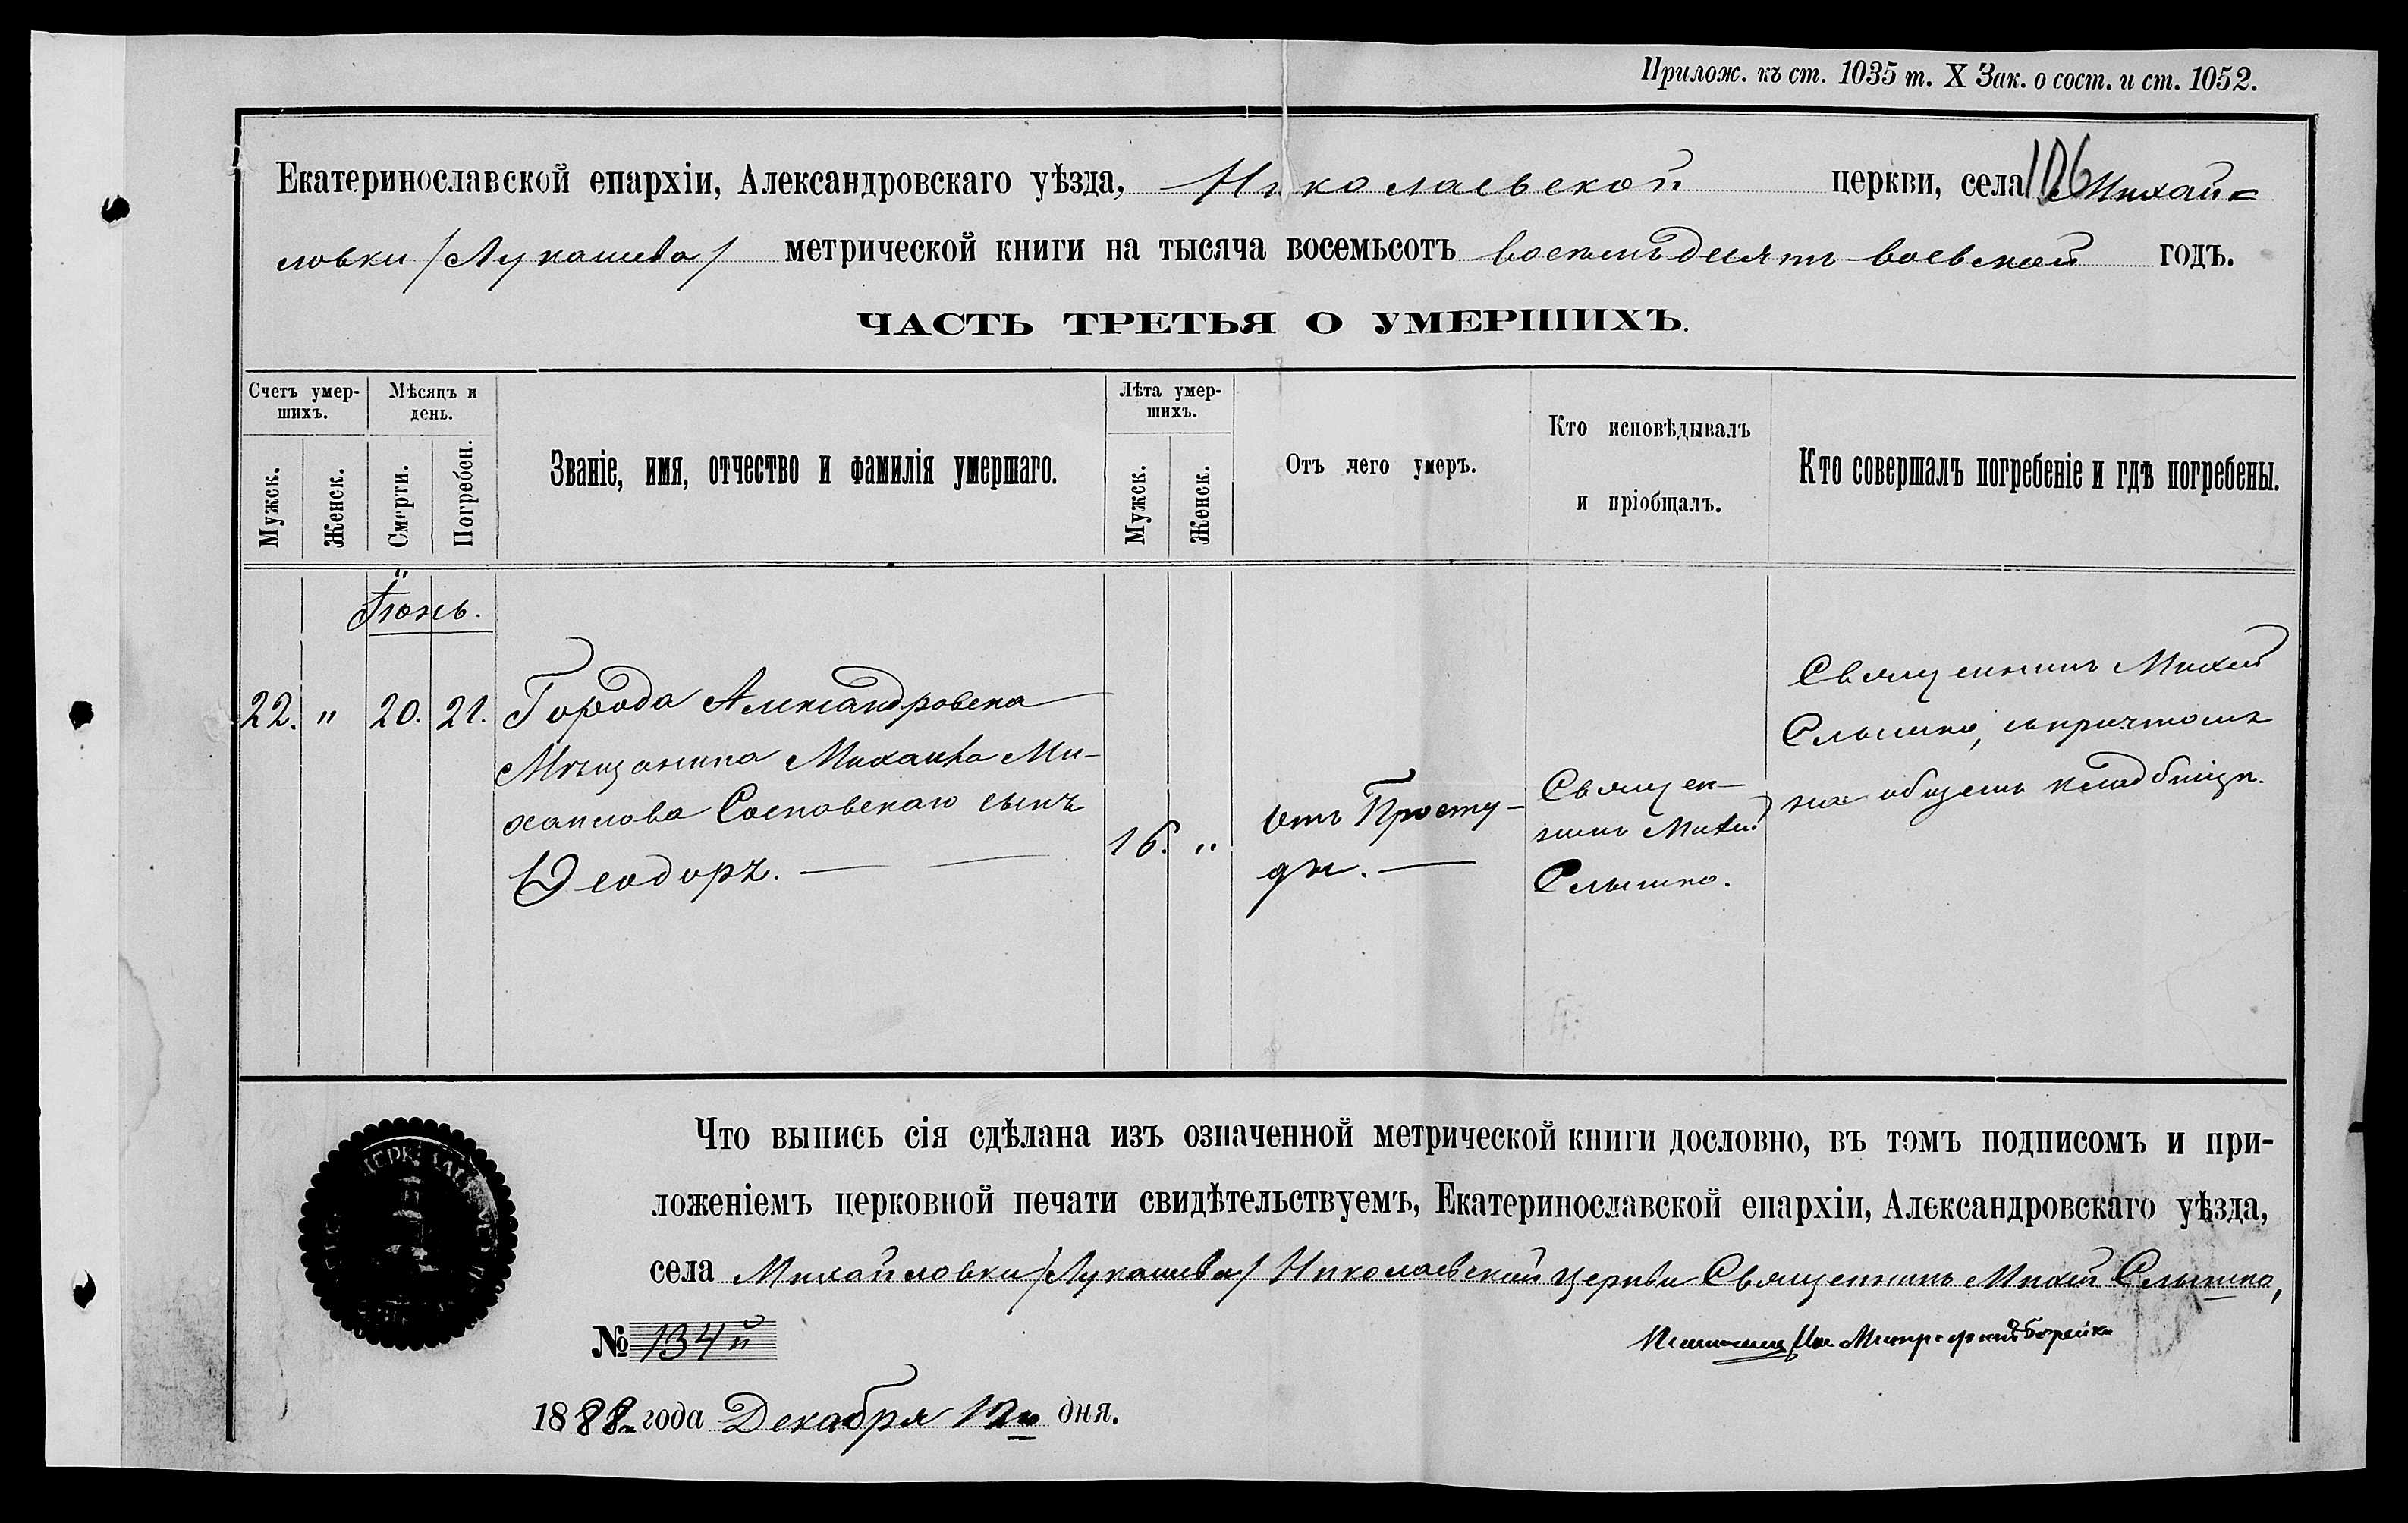 Прилож. къ ст. 1035 т. X Зак. о сост. и ст. 1052.
106
Екатеринославской епархіи, Александровскаго уѣзда, Николаевской церкви, села Михай=
ловки /Лукашева/ метрической книги на тысяча восемьсотъ восемьдесятъ восьмой годъ.
ЧАСТЬ ТРЕТЬЯ О УМЕРШИХЪ.
Счетъ умер-
шихъ.
Мужск.
Женск.
Мѣсяцъ и
день.
Смерти.
Погребен.
Званіе, имя, отчество и фамилія умершаго.
Лѣта умер-
шихъ.
Мужск.
Женск.
Отъ чего умеръ.
Кто исповѣдывалъ
и пріобщалъ.
Кто совершалъ погребеніе и гдѣ погребены.
Іюнь.
22. " 20. 21.
Города Александровска
Мѣщанина Михаила Ми-
хаилова Сосновскаго сынъ
Ѳеодоръ.
16. "
Отъ Просту-
ды.
Священ-
никъ Михей
Слышко.
Священникъ Михей
Слышко, съ причтомъ
на общемъ кладбищѣ.
Что выпись сія сдѣлана изъ означенной метрической книги дословно, въ томъ подписомъ и при-
ложеніемъ церковной печати свидѣтельствуемъ, Екатеринославской епархіи, Александровскаго уѣзда,
села Михайловки /Лукашева/ Николаевской церкви Священникъ Михей Слышко,
Псаломщикъ
№ 134й
1888 года Декабря 12го дня.